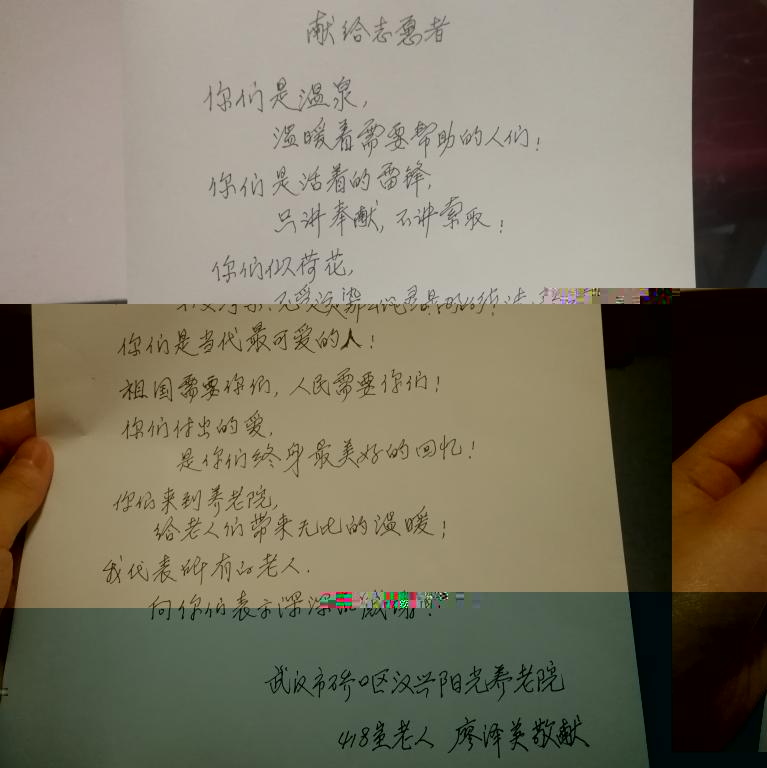 献给志愿者
你们是温泉，
温暖着需要帮助的人们！
你们是活着的雷锋，
只讲奉献，不讲索取！
你们似荷花，
你们是当代最可爱的人！
祖国需要你们，人民需要你们！
你们付出的爱，
是你们终身最美好的回忆！
你们来到养老院，
给老人们带来无比的温暖！
我代表所有的老人．
向你们表示深深的感谢！
武汉市硚口区汉兴阳光养老院
418室老人 廖泽美敬献